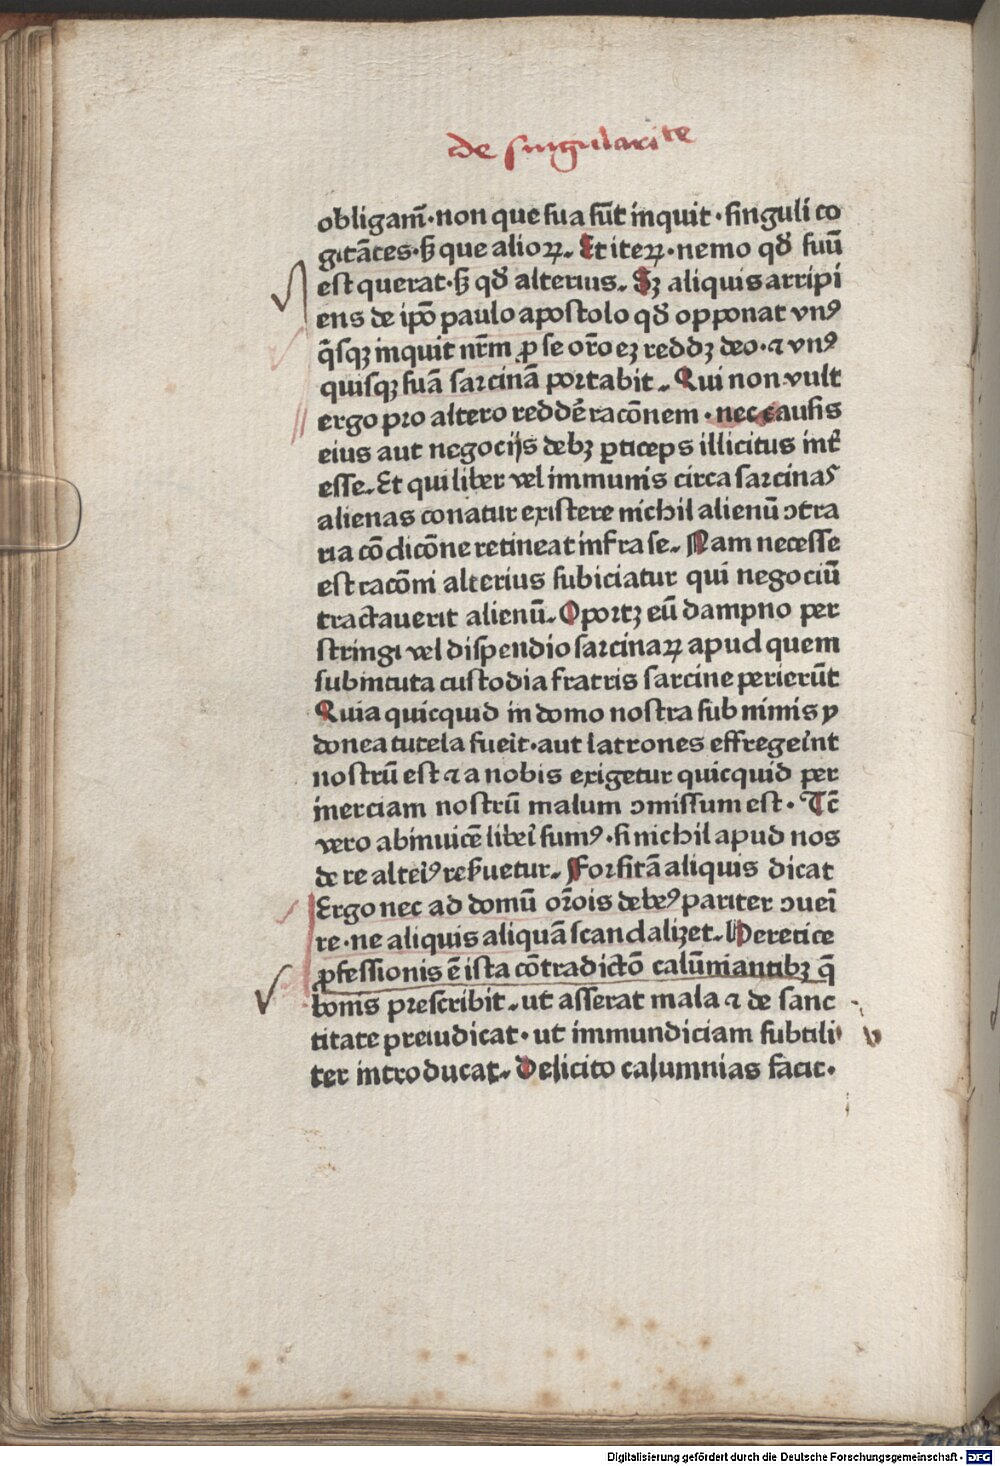 de singularite
obligam̃·non que sua sũt inquit·singuli co
gitãces·sꝫ que alioꝝ. Et iteꝝ·nemo qđ suũ
est querat·sꝫ qđ alterius. Sꝫ aliquis arripi
ens de ip̃o paulo apostolo qđ opponat vnꝰ
q̃sqꝫ inquit nr̃m ꝓ se or̃o eꝫ reddꝫ deo·⁊ vnꝰ
quisqꝫ suã sarcinã portabit. Qui non vult
ergo pro altero reddẽ racõnem·nec causis
eius aut negocijs debꝫ ꝑticeps illicitus int̃
esse. Et qui liber vel immunis circa sarcinas
alienas conatur existere nichil alienũ ↄtra
ria cõdicõne retineat infra se. Nam necesse
est racõni alterius subiciatur qui negociũ
tractauerit alienũ. Oportꝫ eũ dampno per
stringi vel dispendio sarcinaꝝ apud quem
sub intuta custodia fratris sarcine perierũt
Quia quicquid in domo nostra sub nimis y
donea tutela fuei̇t·aut latrones effregei̇nt
nostrũ est ⁊ a nobis exigetur quicquid per
inerciam nostrũ malum ↄmissum est. Tc̃
vero abinuicẽ libei̇ sumꝰ·si nichil apud nos
de re altei̇ꝰ res̃uetur. Forsitã aliquis dicat
Ergo nec ad domũ or̃ois debeꝰ pariter ↄuei̇
re·ne aliquis aliquã scandalizet. Heretice
ꝓfessionis ẽ ista cõtradictõ calũniantibꝫ q̃
bonis prescribit. ut asserat mala ⁊ de sanc
titate preiudicat·ut immundiciam subtili
ter introducat. De licito calumnias facit.
Digitalisierung gefördert durch die Deutsche Forschungsgemeinschaft · DFG